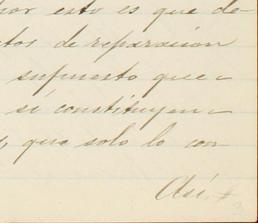 por esto es que de-
tos de reparación
supuesto que
si constituyen
que solo lo con
Así